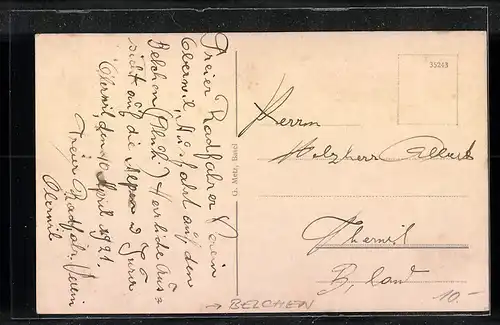 Freier Radfahrer Verein
Oberwil, Ausfahrt auf den
Belchen (Fluh.) Herrliche Aus=
sicht auf die Alpen & Jura
Oberwil, den 10 April 1921.
Freier Radfahr. Verein
Oberwil
Ch. Metz, Basel
35243
Herrn
Albert
Therwil
B, land
→ BELCHEN
10.-